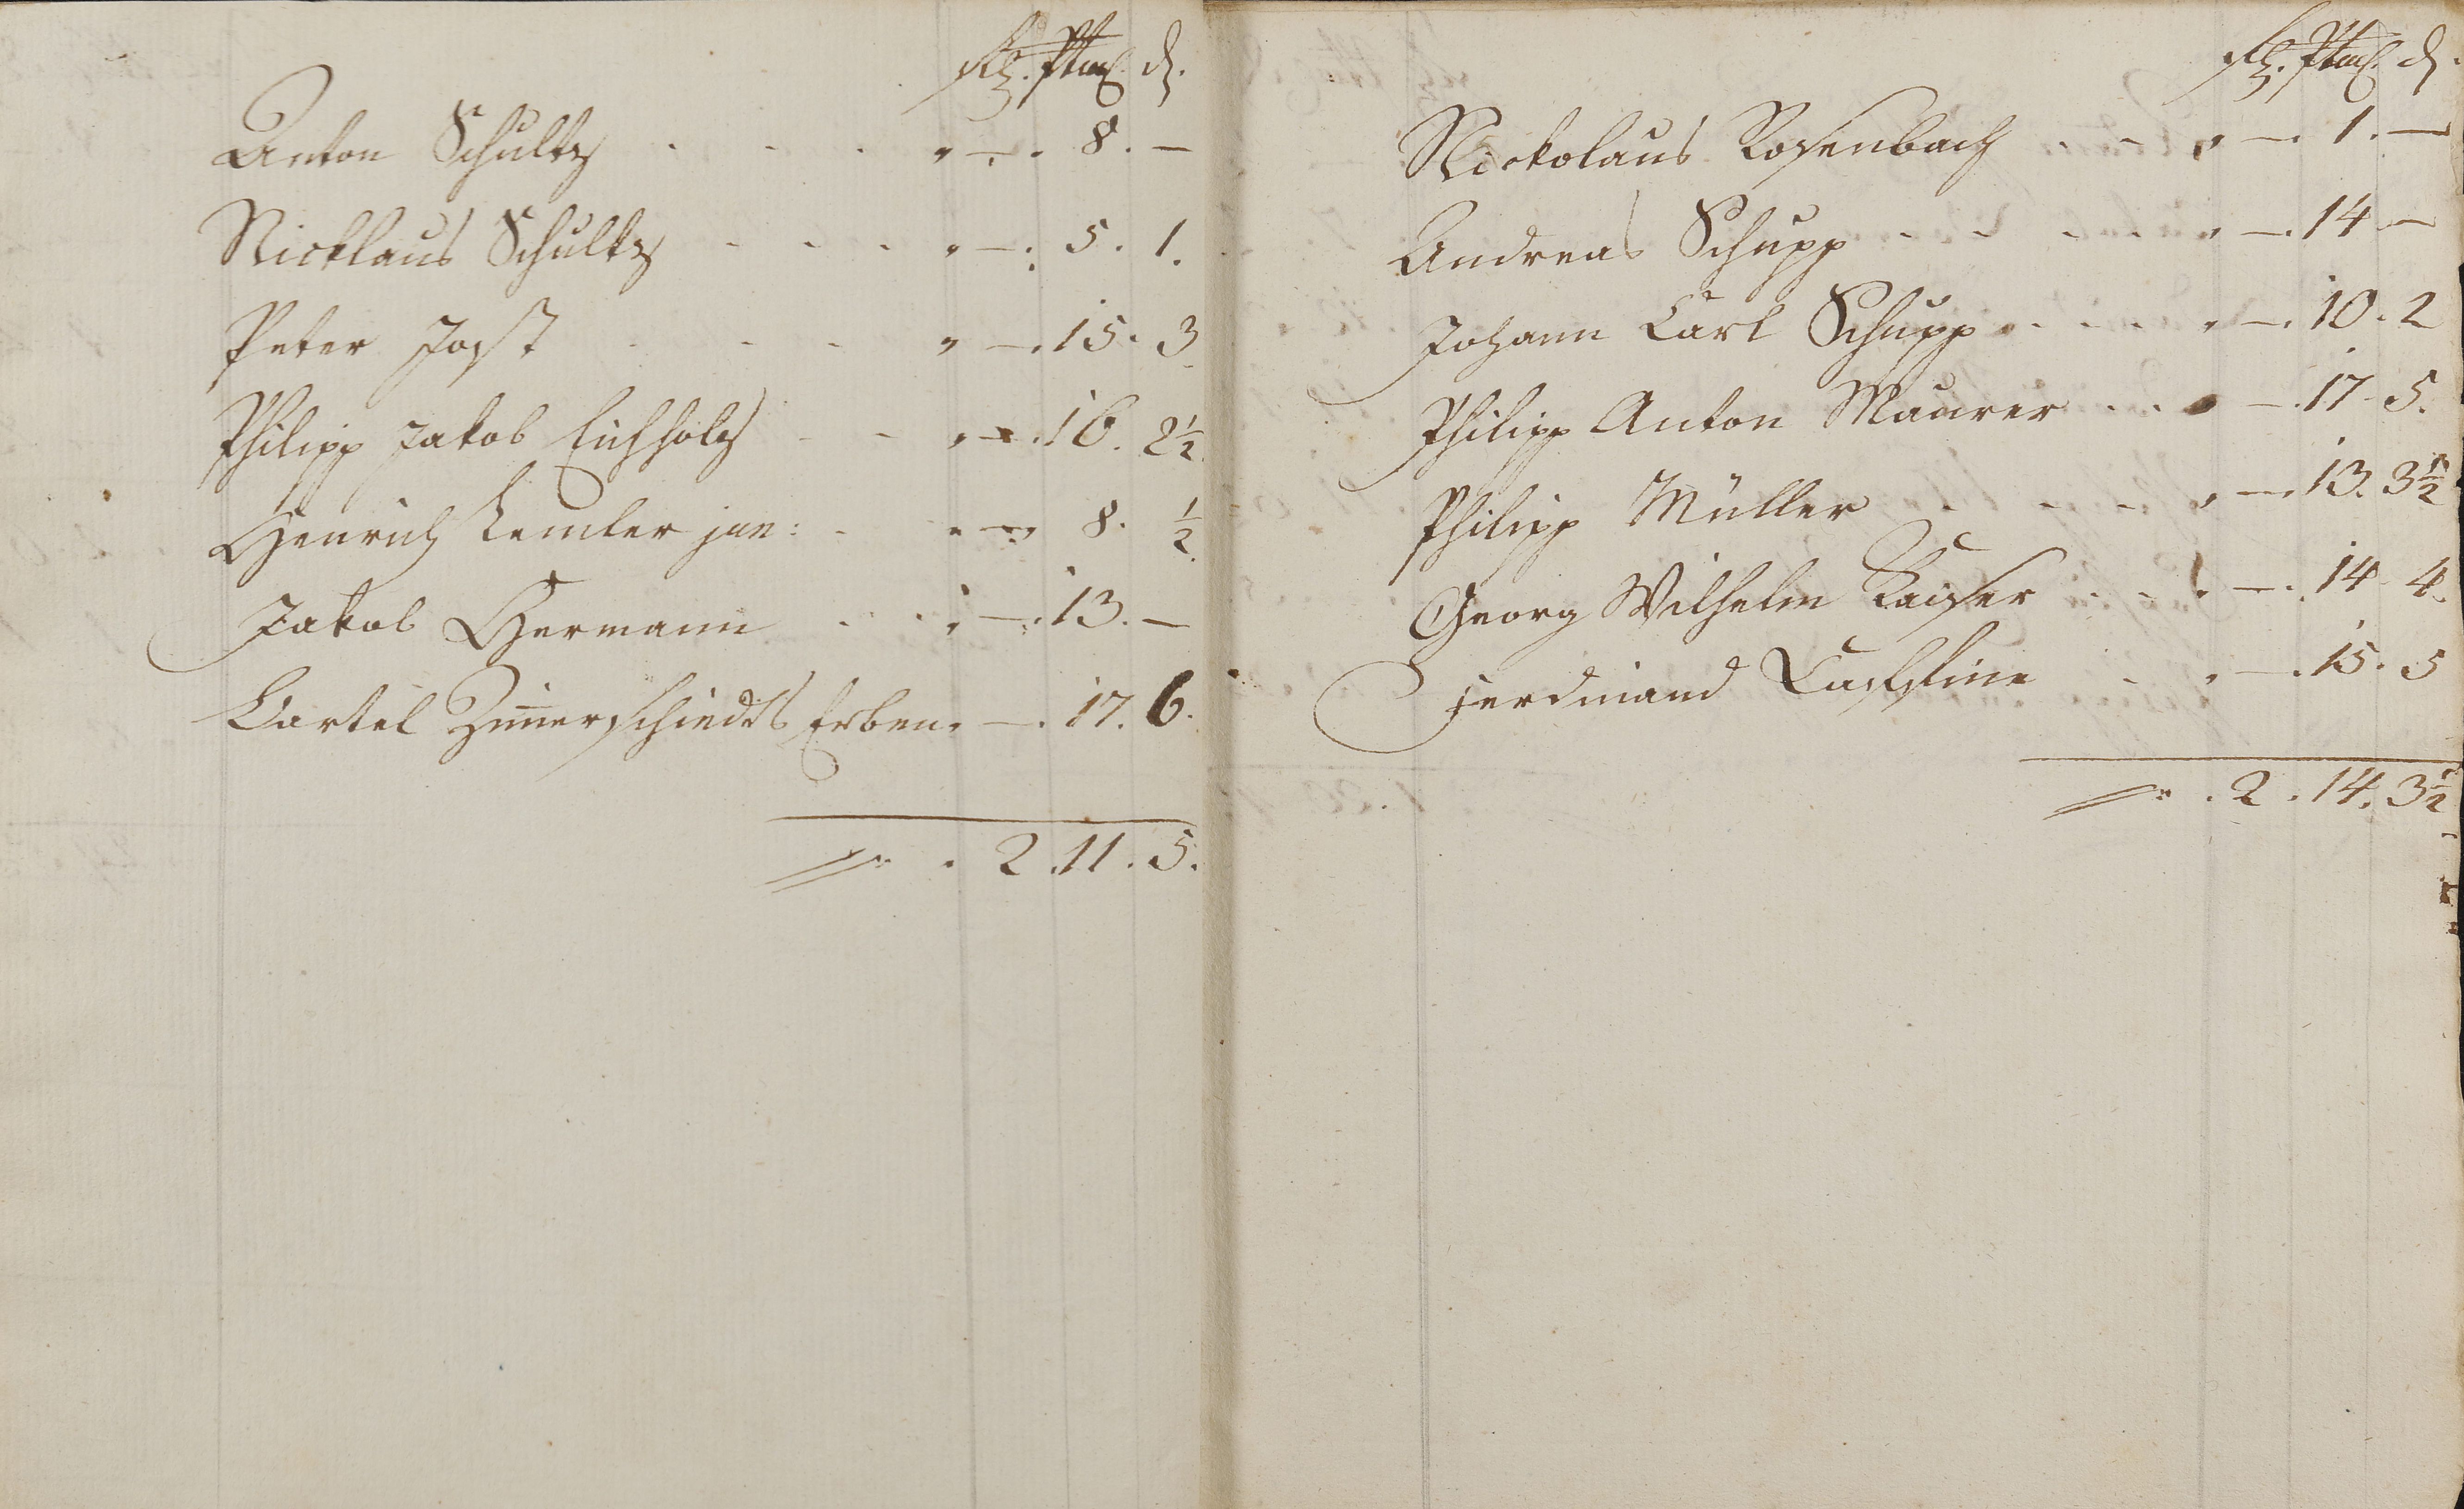 Rh. Ptm. d.
Anton Schultz . . . " — . 8 . —
Nicklaus Schultz . . . " — . 5 . 1.
Peter Jost . . . " — . 15 . 3
Philipp Jakob Eichholz . . " — . 16 . 2½.
Henrich Lemler jun: . " — 8 . ½.
Jakob Hermann . . . — . 13 . —
Bartel Zim̄erschiedts Erben . — . 17 . 6.
. 2 . 11 . 5.
Rh. Ptm. d.
Nickolaus Rosenbach . . " — . 1 . —
Andreas Schupp . . . . " — . 14 —
Johann Carl Schupp . . . " — . 10 . 2
Philipp Anton Maurer . . . — . 17 . 5.
Philipp Müller . . . " — . 13 . 3½
Georg Wilhelm Kaiser . . . — . 14 . 4.
Ferdinand . . — . 15 . 5
. 2 . 14 . 3½